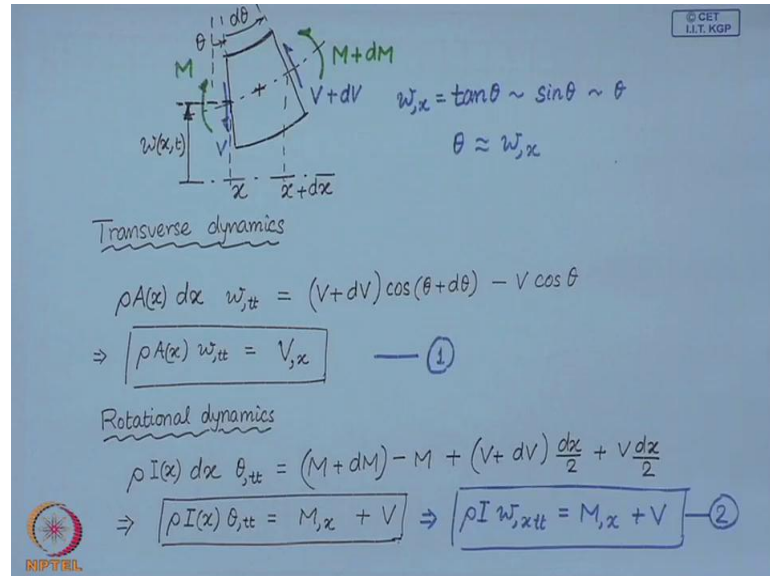 © CET
I.I.T. KGP
dθ
θ
M
M+dM
V+dV
V
w(x,t)
x
x+dx
w,x = tanθ ~ sinθ ~ θ
θ ≈ w,x
Transverse dynamics
ρA(x) dx w,tt = (V+dV) cos(θ+dθ) − V cosθ
⇒ ρA(x) w,tt = V,x —— ①
Rotational dynamics
ρI(x) dx θ,tt = (M+dM) − M + (V+dV) dx/2 + V dx/2
⇒ ρI(x) θ,tt = M,x + V ⇒ ρI w,xtt = M,x + V — ②
NPTEL